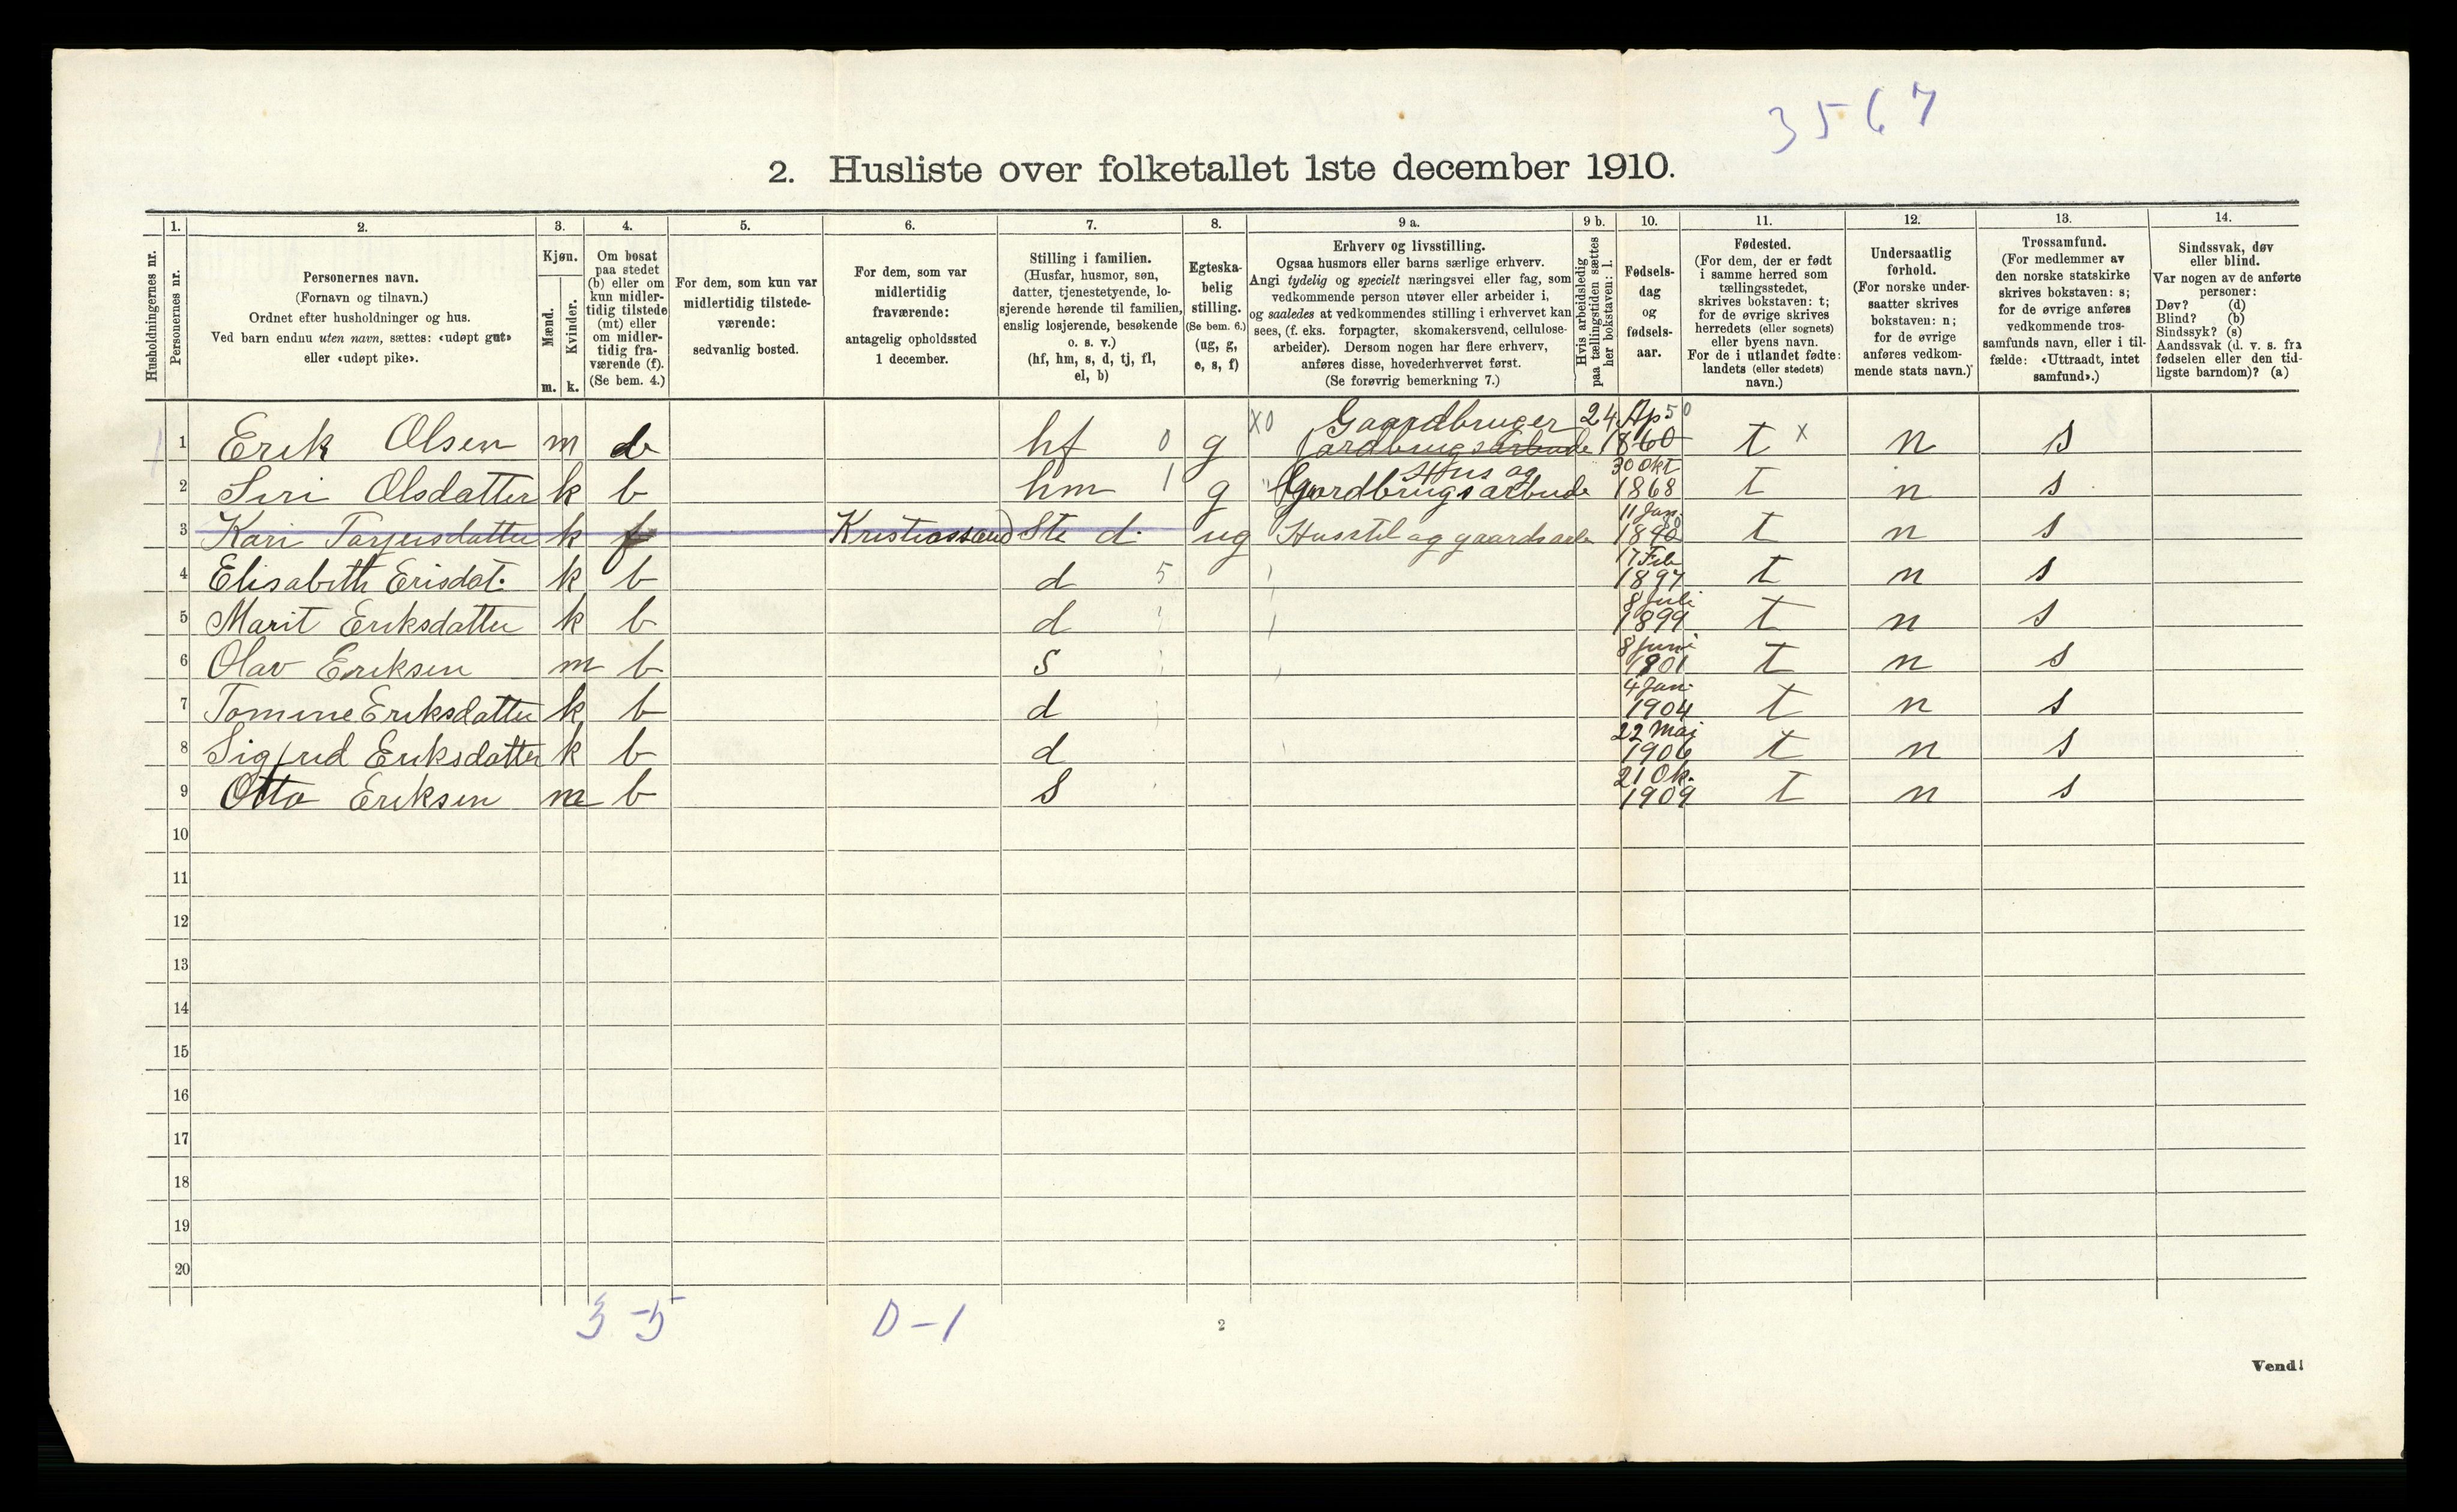 3567
2. Husliste over folketallet 1ste december 1910.
Husholdningernes nr.
1. Personernes nr.
2. Personernes navn.
(Fornavn og tilnavn.)
Ordnet efter husholdninger og hus.
Ved barn endnu uten navn, sættes: «udøpt gut»
eller «udøpt pike».
3. Kjøn.
Mænd. m.
Kvinder. k.
4. Om bosat
paa stedet
(b) eller om
kun midler-
tidig tilstede
(mt) eller
om midler-
tidig fra-
værende (f).
(Se bem. 4.)
5. For dem, som kun var
midlertidig tilstede-
værende:
sedvanlig bosted.
6. For dem, som var
midlertidig
fraværende:
antagelig opholdssted
1 december.
7. Stilling i familien.
(Husfar, husmor, søn,
datter, tjenestetyende, lo-
sjerende hørende til familien,
enslig losjerende, besøkende
o. s. v.)
(hf, hm, s, d, tj, fl,
el, b)
8. Egteska-
belig
stilling.
(Se bem. 6.)
(ug, g,
e, s, f)
9 a. Erhverv og livsstilling.
Ogsaa husmors eller barns særlige erhverv.
Angi tydelig og specielt næringsvei eller fag, som
vedkommende person utøver eller arbeider i,
og saaledes at vedkommendes stilling i erhvervet kan
sees, (f. eks. forpagter, skomakersvend, cellulose-
arbeider). Dersom nogen har flere erhverv,
anføres disse, hovederhvervet først.
(Se forøvrig bemerkning 7.)
9 b. Hvis arbeidsledig
paa tællingstiden sættes
her bokstaven: l.
10. Fødsels-
dag
og
fødsels-
aar.
11. Fødested.
(For dem, der er født
i samme herred som
tællingsstedet,
skrives bokstaven: t;
for de øvrige skrives
herredets (eller sognets)
eller byens navn.
For de i utlandet fødte:
landets (eller stedets)
navn.)
12. Undersaatlig
forhold.
(For norske under-
saatter skrives
bokstaven: n;
for de øvrige
anføres vedkom-
mende stats navn.)
13. Trossamfund.
(For medlemmer av
den norske statskirke
skrives bokstaven: s;
for de øvrige anføres
vedkommende tros-
samfunds navn, eller i til-
fælde: «Uttraadt, intet
samfund».)
14. Sindssvak, døv
eller blind.
Var nogen av de anførte
personer:
Døv? (d)
Blind? (b)
Sindssyk? (s)
Aandssvak (d. v. s. fra
fødselen eller den tid-
ligste barndom)? (a)
1 Erik Olsen m b hf 0 g X0 Gaardbruger 24 Ap 50 1860 t x n s
2 Siri Olsdatter k b hm 1 g Hus og Gardbrugsarbeide 30 Okt 1868 t n s
3 Kari Tarjeisdatter k f Kristiassand Ste d. ug Husstel og gaardsarb 11 Jan. 1890 t n s
4 Elisabeth Erisdat. k b d 5 17 Feb 1897 t n s
5 Marit Eriksdatter k b d 8 Juli 1899 t n s
6 Olav Eriksen m b s 8 Juni 1901 t n s
7 Tomine Eriksdatter k b d 4 Jan. 1904 t n s
8 Sigfrid Eriksdatter k b d 22 Maj 1906 t n s
9 Otto Eriksen m b s 21 Ok. 1909 t n s
10
11
12
13
14
15
16
17
18
19
20
3-5
0-1
2
Vend!